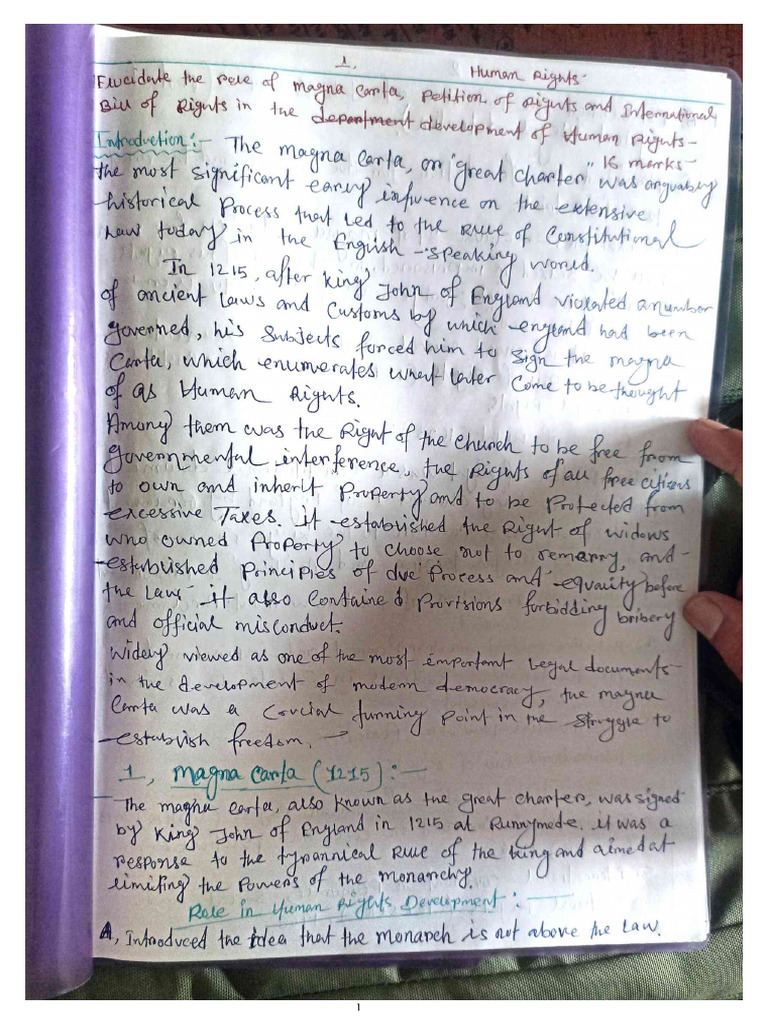 1,
Human Rights-
Elucidate the role of magna Carta, Petition of Rights and International
Bill of Rights in the department development of Human Rights-
16 marks-
Introduction:- The magna Carta, or "great charter" was arguabley
the most significant early influence on the extensive
historical Process that led to the Rule of Constitutional
Law today in the English-speaking world.
In 1215, after King John of England violated a number
of ancient Laws and Customs by which england had been
governed, his Subjects forced him to sign the magna
Carta, which enumerates what later come to be thought
of as Human Rights.
Among them was the Right of the church to be free from
governmental interference, the Rights of all free citizens
to own and inherit Property and to be Protected from
excessive Taxes. it established the Right of widows
who owned Property to choose not to remarry, and-
established Principles of due Process and equality before
the Law- it also Contained Provisions forbidding bribery
and official misconduct.
Widely viewed as one of the most important Legal documents-
in the development of modern democracy, the magna
Carta was a Crucial turning Point in the struggle to
establish freedom. →
1, Magna Carta (1215):-
The magna carta, also known as the great charter, was signed
by King John of England in 1215 at Runnymede. it was a
response to the tyrannical Rule of the king and aimed at
limiting the Powers of the monarchy.
Role in Human Rights Development:-
A, Introduced the idea that the monarch is not above the Law.
1